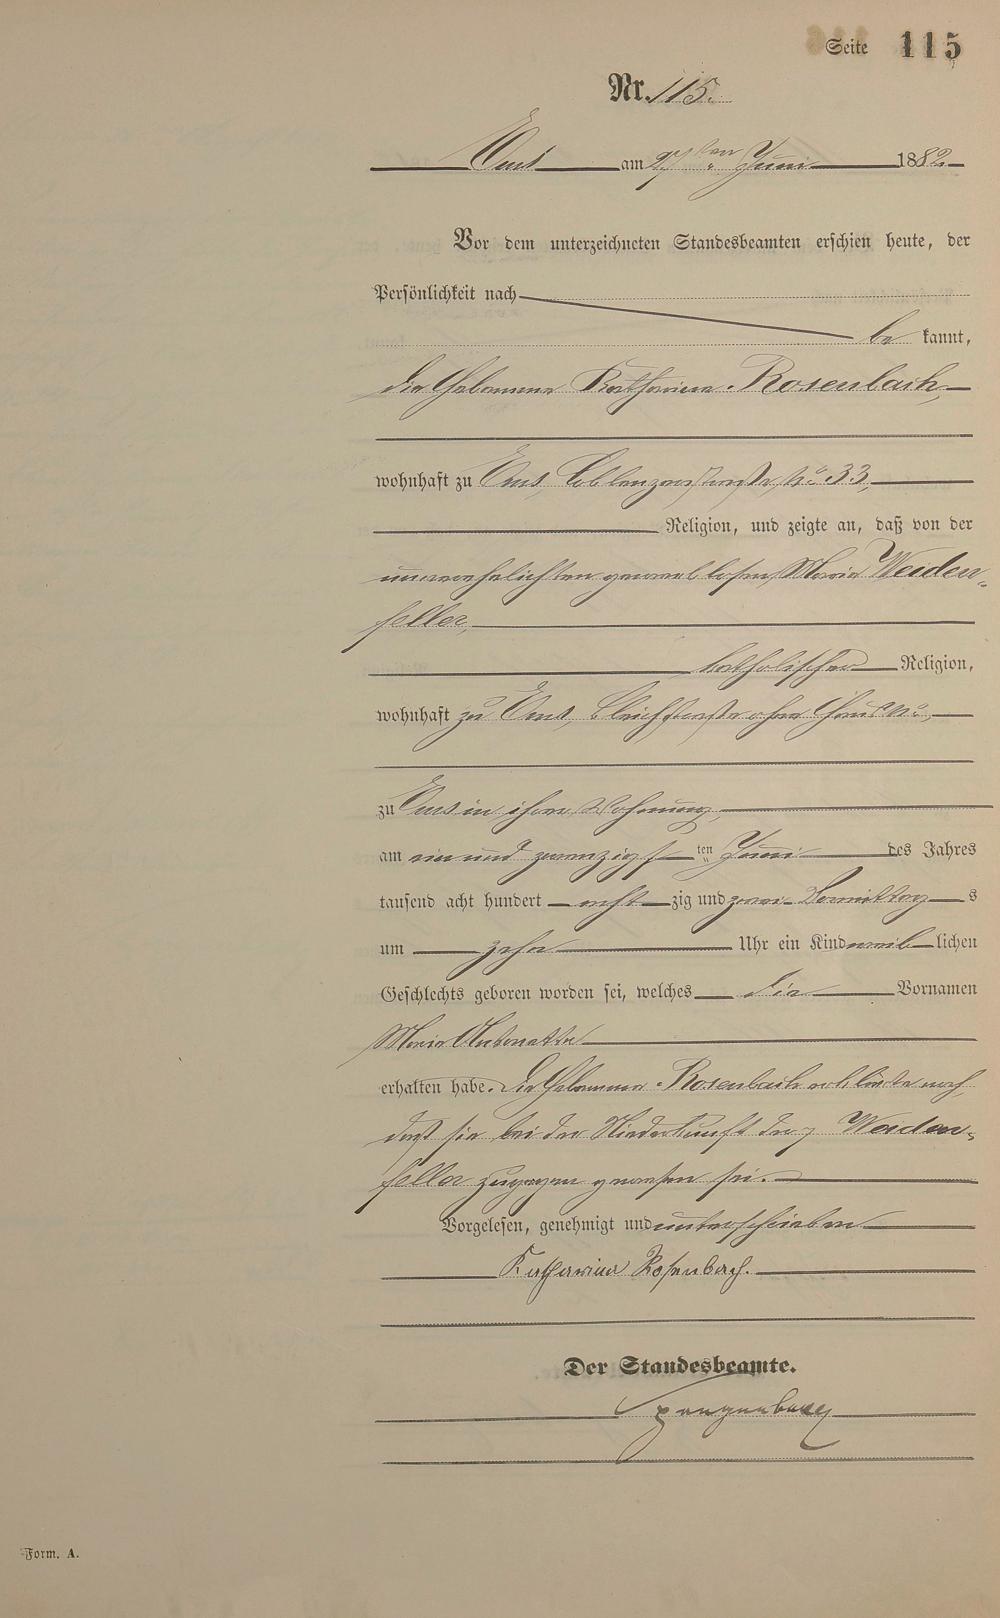 Seite 115
Nr. 115.
Ems am 27ten Juni 1882
Vor dem unterzeichneten Standesbeamten erschien heute, der
Persönlichkeit nach
be kannt,
die Hebamme Katharina Rosenbach,
wohnhaft zu Ems, Coblenzerstraße No 33,
Religion, und zeigte an, daß von der
unverehelichten gewerblosen Maria Weiden-
feller,
katholischer Religion,
wohnhaft zu Ems, Bleichstraße ohne Haus No,
zu Ems in ihrer Wohnung,
am ein und zwanzigsten Juni des Jahres
tausend acht hundert acht zig und zwei Vormittags
um zehn Uhr ein Kind weiblichen
Geschlechts geboren worden sei, welches die Vornamen
Maria Antonetta
erhalten habe. Die Hebamme Rosenbach erklärte noch,
daß sie bei der Niederkunft der Weiden-
feller zugegen gewesen sei.
Vorgelesen, genehmigt und unterschrieben
Katharina Rosenbach.
Der Standesbeamte.
Spangenberg
Form. A.